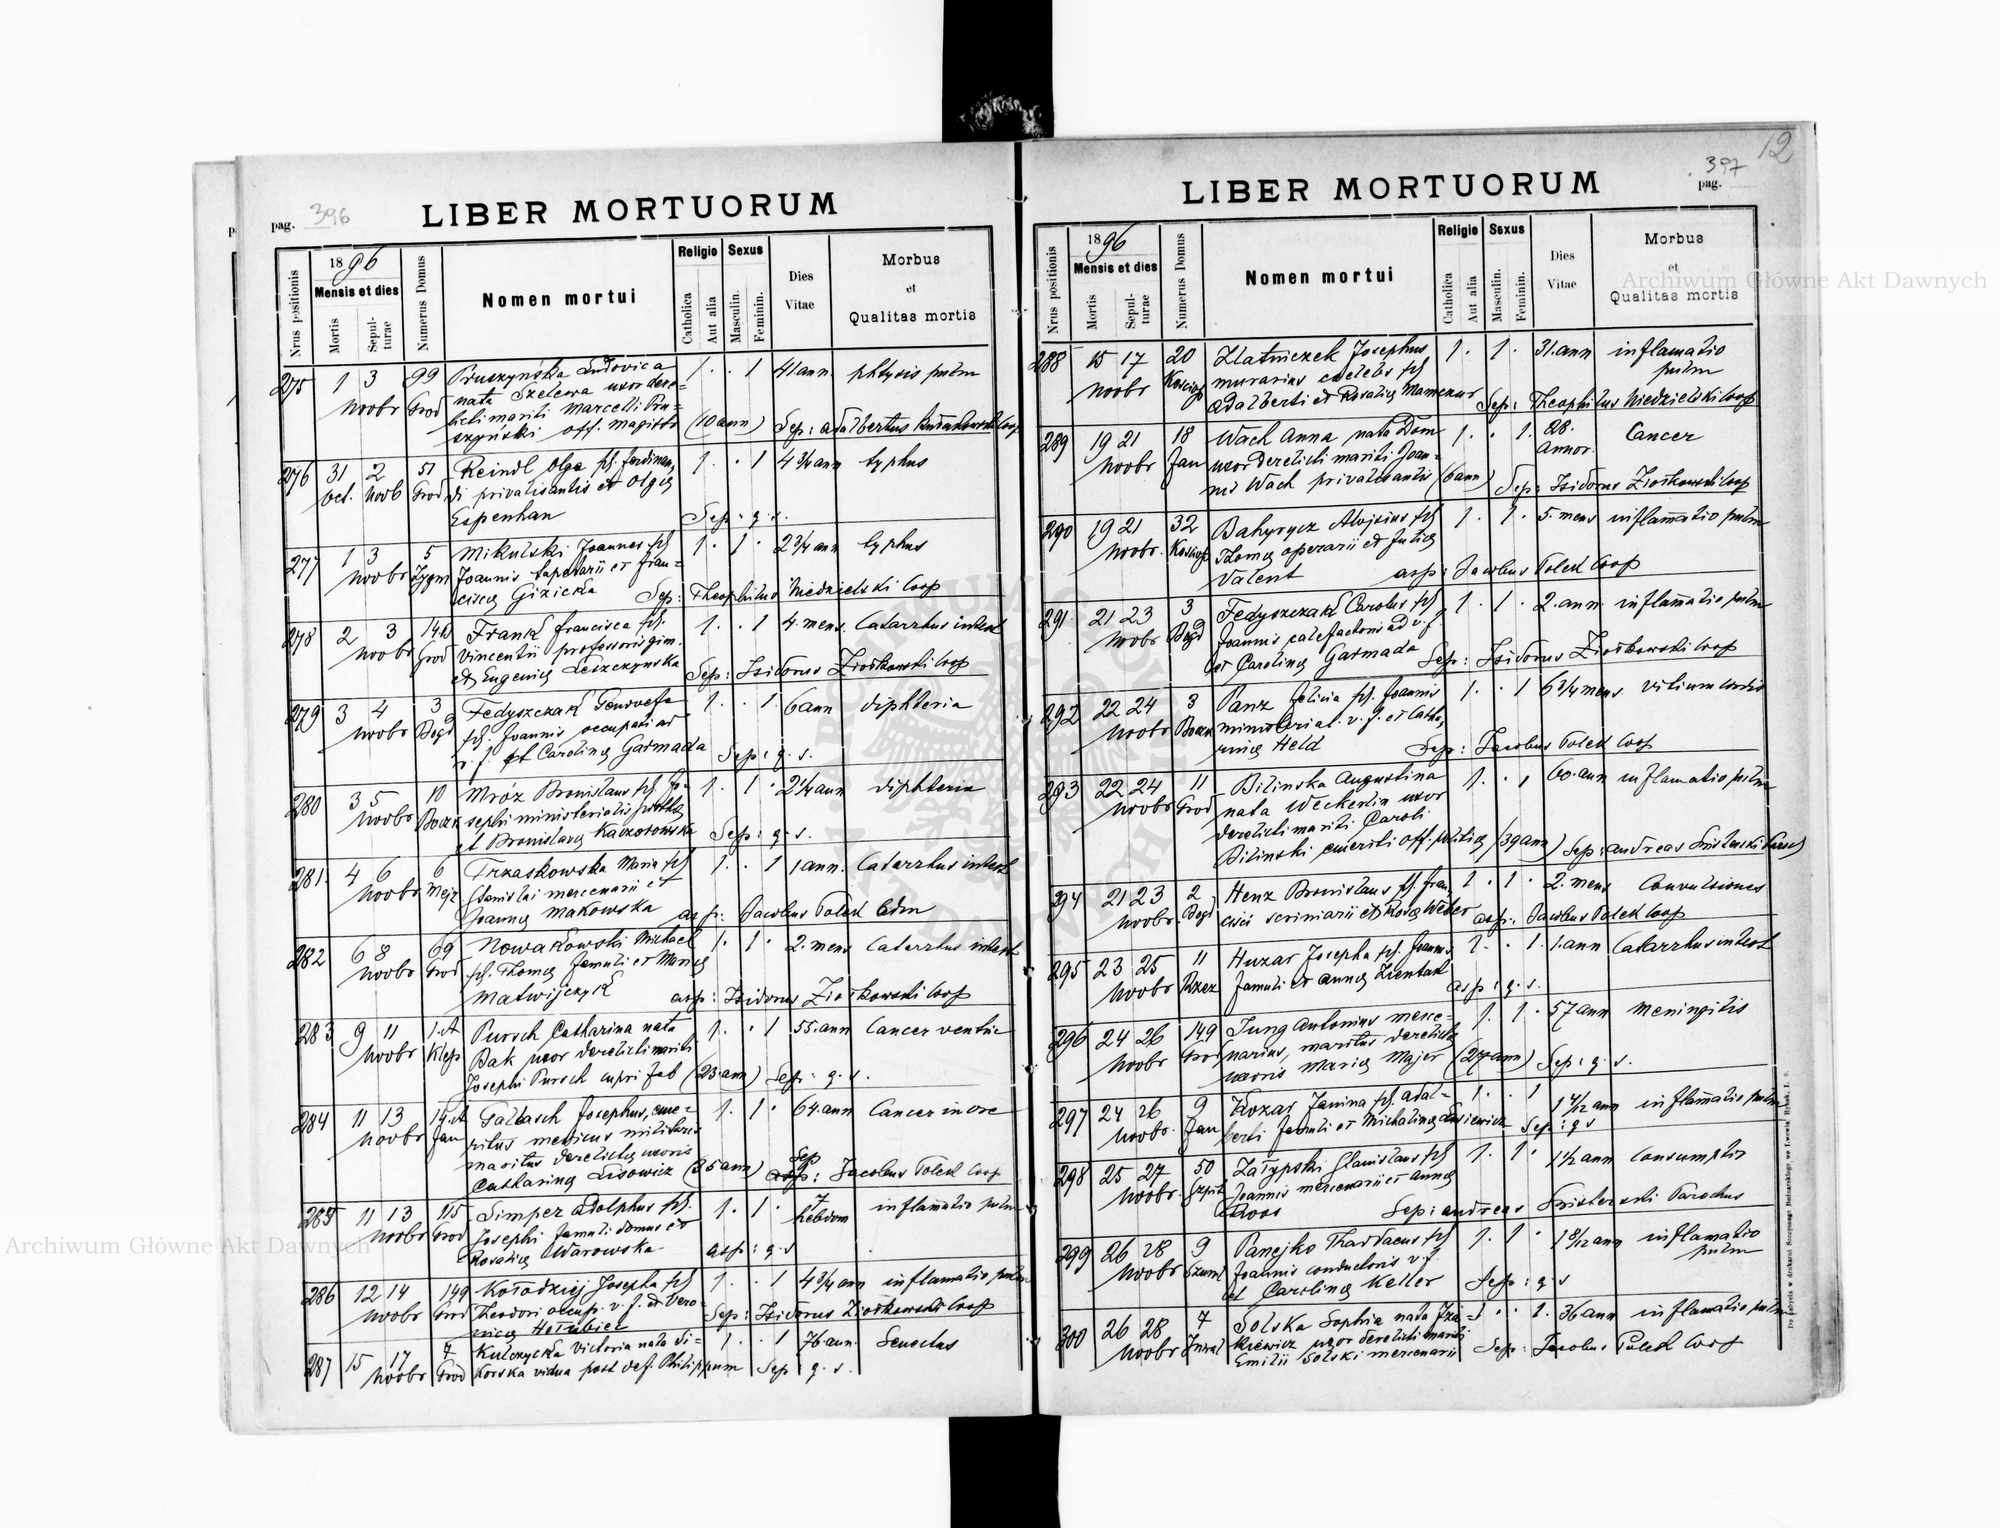 pag. 396
LIBER MORTUORUM
Nrus positionis
1896
Mensis et dies
Mortis
Sepul-
turae
Numerus Domus
Nomen mortui
Religio
Catholica
Aut alia
Sexus
Masculin.
Feminin.
Dies
Vitae
Morbus
et
Qualitas mortis
275 1 3 99 Pruszyńska Ludovica 1 . . 1 41 ann. phtysis pulm
Novbr Grod nata uxor dere-
licti mariti Marcelli Pru-
szyński off. magistr (10 ann) Sep: Adalbertus Coop
276 31 2 51 Reindl Olga fil. Ferdinan- 1 . . 1 4 3/4 ann typhus
Oct. Novb Grod di privatisantis et Olgae
Espenhan Sep: q. s.
277 1 3 5 Mikulski Joannes fil 1 . 1 . 2 3/4 ann typhus
Novbr Zygm Joannis tapetarii et Fran-
ciscae Gizicka Sep: Theophilus Niedzielski Coop
278 2 3 Frank Francisca fil. 1 . . 1 4. mens. Catarrhus intest
Novbr Grod Vincentii professoris gim.
et Eugeniae Leszczynska Sep: Isidorus Ziołkowski Coop
279 3 4 3 Fedyszczak Genovefa 1 . . 1. 6 ann diphteria
Novbr Bogd fil. Joannis occupati ad
v. f. et Carolinae Garmada Sep: q. s.
280 3 5 10 Mróz Bronislaus fil. Jo- 1 . 1 . 2 1/4 ann diphteria
Novbr sephi ministerialis
et Bronislavae Kaczorowska Sep: q. s.
281. 4 6 6 Trzaskowska Maria fil 1 . . 1 1 ann. Catarrhus intest
Novbr Stanislai mercenarii et
Joannae Makowska asp: Jacobus Polek
282 6 8 69 Nowakowski Michael 1 . 1 . 2. mens Catarrhus intest
Novbr Grod fil. Thomae famuli et Mariae
Matwijczyk asp: Isidorus Ziołkowski Coop
283 9 11 Pursch Catharina nata 1 . . 1 55. ann Cancer ventric
Novbr Klep Bak uxor derelicti mariti
Josephi Pursch cupri fab (23 ann) Sep: q. s.
284 11 13 Gallasch Josephus, eme- 1 . 1 . 64. ann Cancer in ore
Novbr Jan ritus medicus militaris
maritus derelictae uxoris Sep
Catharinae Lisowicz (35 ann) asp: Jacobus Polek Coop
285 11 13 115 Simper Adolphus fil. 1 . 1 . 7 inflamatio pulm
Novbr Grod Josephi famuli domus et hebdom
Rosaliae Warowska asp: q. s
286 12 14 149 Kołodziej Josepha fil 1 . . 1 4 3/4 ann inflamatio pulm
Novbr Grod Theodori occup. v. f. et Vero-
nicae Hołubiec Sep: Isidorus Ziołkowski Coop
287 15 17 7 Kulczycka Victoria nata Si- 1 . . 1 76 ann. Senectus
Novbr Grod korska vidua post def. Philippum Sep: q. s.
12
pag. 397
LIBER MORTUORUM
Nrus positionis
1896
Mensis et dies
Mortis
Sepul-
turae
Numerus Domus
Nomen mortui
Religio
Catholica
Aut alia
Sexus
Masculin.
Feminin.
Dies
Vitae
Morbus
et
Qualitas mortis
288 15 17 20 Zlatniczek Josephus 1 . 1 . 31. ann inflamatio
Novbr murarius caelebs fil pulm
Adalberti et Rosaliae Sep: Theophilus Niedzielski Coop
289 19 21 18 Wach Anna nata Dom 1 . . 1. 28. Cancer
Novbr Jan uxor derelicti mariti Joan- annor.
nis Wach privatisantis (6 ann) Sep: Isidorus Ziołkowski Coop
290 19 21 32 Bahyrycz Aloisius fil 1 . 1 . 5. mens inflamatio pulm
Novbr. Thomae operarii et Juliae
Valent asp: Jacobus Polek Coop
291 21 23 3 Fedyszczak Carolus fil 1 . 1 . 2. ann. inflamatio pulm
Novbr Bogd Joannis calefactoris ad v. f
et Carolinae Garmada Sep: Isidorus Ziołkowski Coop
292 22 24 3 Panz Felicia fil. Joannis 1 . . 1 6 3/4 mens. vitium cordis
Novbr ministerial. v. f. et Catha-
rinae Held Sep: Jacobus Polek Coop
293 22 24 11 Bilinska Augustina 1 . . 1 60. ann inflamatio pulm
Novbr Grod nata Weckertin uxor
derelicti mariti Caroli
Bilinski emeriti off. politici (39 ann) Sep: Andreas
294 21 23 2 Henz Bronislaus fil. Fran- 1 . 1 . 2. mens Convulsiones
Novbr. Bogd cisci scriniarii et Rosae Weber asp: Jacobus Polek Coop
295 23 25 11 Huzar Josepha fil. Joannis 1 . . 1. 1. ann Catarrhus intest
Novbr Rzez famuli et Annae Zientak asp: q. s.
296 24 26 149 Jung Antonius merce- 1 . 1 . 57 ann meningitis
Novbr Grod narius, maritus derelictae
uxoris Mariae Majer (27 ann) Sep: q. s.
297 24 26 9 Kozar Janina fil. Adal- 1 . . 1 1 4/12 ann inflamatio pulm
Novbr. Jan berti famuli et Michalinae Sep: q s
298 25 27 50 Załypski Stanislaus fil 1 . 1 . 1 1/2 ann consumptio
Novbr. Szpit Joannis mercenarii et Annae
Roos Sep: Andreas Parochus
299 26 28 9 Panejko Thaddaeus fil 1 . 1 . 1 8/12 ann inflamatio
Novbr Szuml Joannis conductoris v. f. pulm
et Carolinae Keller Sep: q. s
300 26 28 7 Solska Sophia nata 1 . . 1. 36 ann inflamatio pulm
Novbr uxor derelicti mariti
Emilii Solski mercenarii Sep: Jacobus Polek Coop
Do nabycia w drukarni Szczęsnego Bednarskiego we Lwowie Rynek l. 9.
Archiwum Główne Akt Dawnych
Archiwum Główne Akt Dawnych